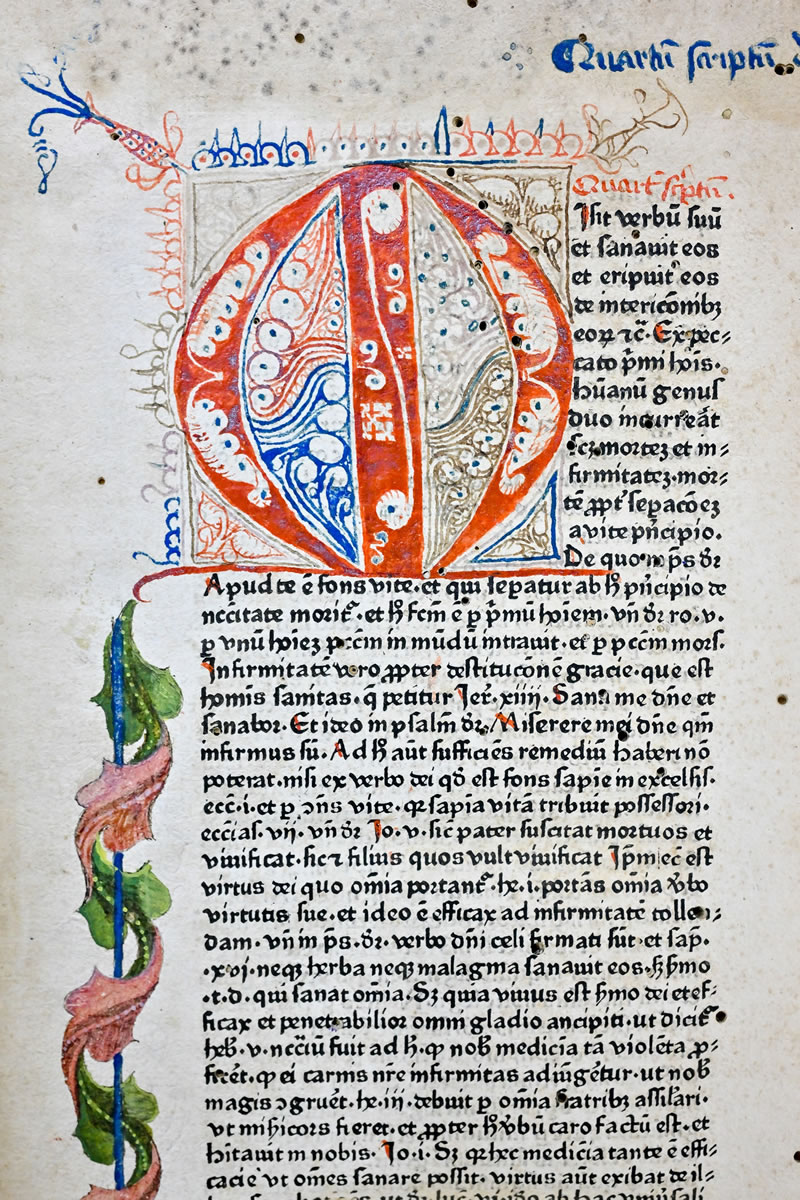 Quartū scriptū
Quart᷒ sc͛iptū.
Isit verbū suū
et sanauit eos
et eripuit᷒ eos
de intericōnibꝫ
eoꝝ ⁊c̄. Ex pec⸗
cato p̄mi hoīs.
hūanū genus
duo incurreāt
scꝫ mortē et in⸗
firmitatēꝫ. mor⸗
tē ꝓpt᷒ sepacōeꝫ
a vite pn̄cipio.
De quo in ps dr̄
Apud te ē fons vite. et qui sepatur ab h̄ pn̄cipio de
nccītate morit᷒. et h̄ fcm̄ ē ꝑ p̄mū hoīem. vn̄ dr̄ ro. v.
ꝑ vnū hoīeꝫ pccm̄ in mūdū intrauit. et ꝑ pccm̄ mors.
Infirmitatē vero ꝓpter destitucōnē gracie. que est
homīs sanitas. q̄ petitur Jer̄. xiiii. Sana me dn̄e et
sanabor. Et ideo in psalm̄ dr̄. Miserere mei dn̄e qm̄
infirmus sū. Ad h̄ aūt sufficiēs remediū haberi nō
poterat. nisi ex verbo dei qd̄ est fons sapīe in excelsis.
ecc̄. i. et ꝑ ꝯn̄s vite. qꝛ sapīa vitā tribuit possessori.
ecc̄ias. vii. vn̄ dr̄ Jo. v. sic pater suscitat mortuos et
viuificat. sic ⁊ filius quos vult viuificat Ip̄m ec̄ est
virtus dei quo om̄ia portant᷒. he. i. portās om̄ia v̄bo
virtutis sue. et ideo ē efficax ad infirmitatē tollen⸗
dam. vn̄ in ps. dr̄. verbo dn̄i celi firmati sūt. et sap̄.
.xvi. neqꝫ herba neqꝫ malagma sanauit eos. ꝫ s̄mo
.t. d. qui sanat om̄ia. Sꝫ quia viuus est s̄mo dei et ef⸗
ficax et penetrabilior omni gladio ancipiti. ut dicit᷒
heb̄. v. nccīū fuit ad h̄. ꝙ nob̄ medicīa tā violēta ꝓ⸗
ficēt. ꝙ ei carnis nr̄e infirmitas adiūgētur. ut nob̄
magis ꝯgruēt. he. iii. debuit ꝑ om̄ia fratribꝫ assīlari.
vt mīsicors fieret. et ꝓpter h̄ v̄bū caro factū est. et
hītauit in nobis. Jo. i. Sꝫ qꝛ hec medicīa tante ē effi⸗
cacie vt om̄es sanare possit. virtus aūt exibat de il⸗